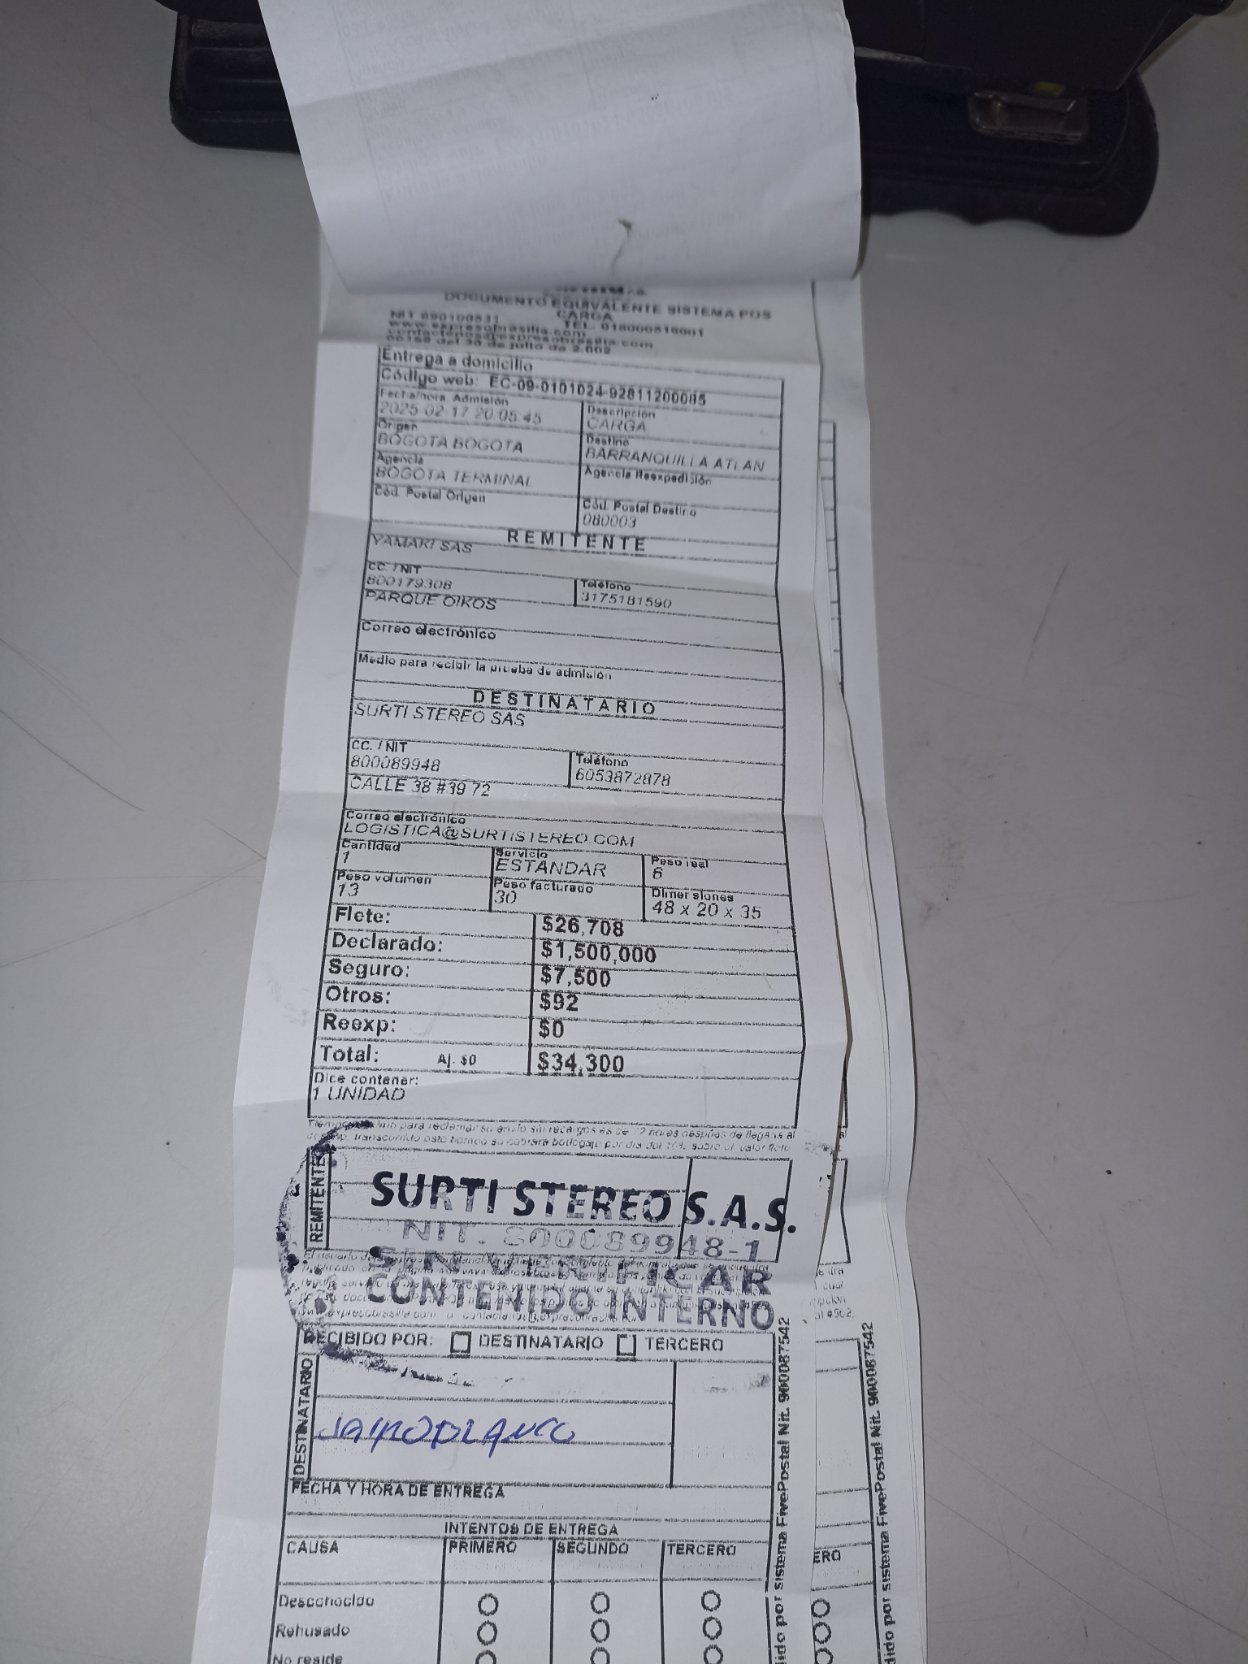 DOCUMENTO EQUIVALENTE SISTEMA POS
CARGA
NIT 890100531 TEL. 018000518001
www.expresobrasilia.com
contactenos@expresobrasilia.com
del 30 de julio de 2.002
Entrega a domicilio
Código web: EC-09-0101024-92811200085
Fecha/hora Admisión Descripción
2025-02-17 20:05:45 CARGA
Origen Destino
BOGOTA BOGOTA BARRANQUILLA ATLAN
Agencia Agencia Reexpedición
BOGOTA TERMINAL
Cód. Postal Origen Cód. Postal Destino
080003
REMITENTE
YAMAKI SAS
CC. / NIT Teléfono
800179308 3175181590
PARQUE OIKOS
Correo electrónico
Medio para recibir la prueba de admisión
DESTINATARIO
SURTI STEREO SAS
CC. / NIT Teléfono
800089948 6053872878
CALLE 38 #39 72
Correo electrónico
LOGISTICA@SURTISTEREO.COM
Cantidad Servicio Peso real
1 ESTANDAR 6
Peso volumen Peso facturado Dimensiones
13 30 48 x 20 x 35
Flete: $26,708
Declarado: $1,500,000
Seguro: $7,500
Otros: $92
Reexp: $0
Total: Aj. $0 $34,300
Dice contener:
1 UNIDAD
para reclamar su envío sin recargos es de 72 horas después de llegar al
transcurrido este tiempo se cobrara bodegaje por día del sobre el valor flete
REMITENTE
SURTI STEREO S.A.S.
NIT. 800089948-1
SIN VERIFICAR
CONTENIDO INTERNO
RECIBIDO POR: DESTINATARIO TERCERO
DESTINATARIO
FECHA Y HORA DE ENTREGA
INTENTOS DE ENTREGA
CAUSA PRIMERO SEGUNDO TERCERO
Desconocido
Rehusado
No reside
dido por sistema FivePostal Nit. 900087542
ERO
dido por sistema FivePostal Nit. 900087542